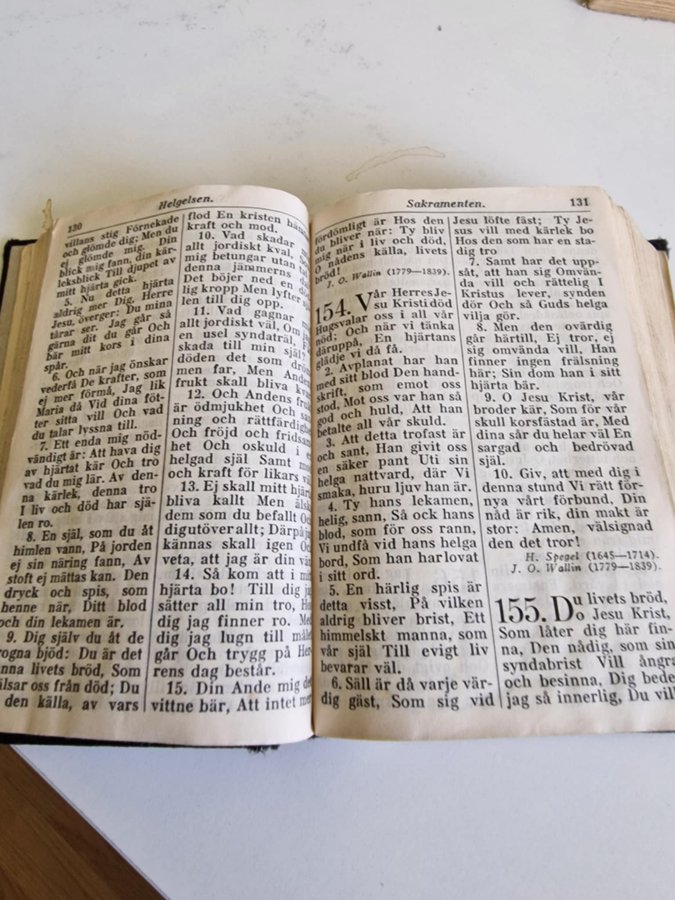 130
Helgelsen.
villans stig Förnekade
och glömde dig; Men du
ej glömde mig. Din
blick mig fann, din kär-
leksblick Till djupet av
mitt hjärta gick.
5. Nu detta hjärta
aldrig mer Dig, Herre
Jesu, överger: Du mina
tårar ser. Jag går så
gärna dit du går Och
bär mitt kors i dina
spår.
6. Och när jag önskar
vederfå De krafter, som
ej mer förmå, Jag lik
Maria då Vid dina föt-
ter sitta vill Och vad
du talar lyssna till.
7. Ett enda mig nöd-
vändigt är: Att hava dig
av hjärtat kär Och tro
vad du mig lär. Av den-
na kärlek, denna tro
I liv och död har själ-
len ro.
8. En själ, som du åt
himlen vann, På jorden
ej sin näring fann, Av
stoft ej mättas kan. Den
dryck och spis, som
henne när, Ditt blod
och din lekamen är.
9. Dig själv du åt de
trogna bjöd: Du är det
livets bröd, Som
oss från död; Du
den källa, av vars
flod En kristen
kraft och mod.
10. Vad skadar
allt jordiskt kval,
mig betungar utan
denna jämmerdal
Det böjer ned en
lig kropp Men lyfter
len till dig opp.
11. Vad gagnar
allt jordiskt väl, Om
en usel syndaträl,
skada till min själ?
döden det som
men far, Men
frukt skall bliva
12. Och Andens
är ödmjukhet Och
ning och rättfärdig
Och fröjd och fridsam
het Och oskuld i
helgad själ Samt
och kraft för likars
13. Ej skall mitt
bliva kallt Men
dem som du befallt Och
dig utöver allt; Därpå
kännas skall igen Och
veta, att jag är din
14. Så kom att i
hjärta bo! Till dig
sätter all min tro,
dig jag finner ro.
dig jag lugn till
går Och trygg på Her-
rens dag består.
15. Din Ande mig
vittne bär, Att intet
Sakramenten.
131
fördömligt är Hos den
du bliver när: Ty bliv
mig när i liv och död,
O nådens källa, livets
bröd!
J. O. Wallin (1779—1839).
154. Vår Herres Je-
su Kristi död
Hugsvalar oss i all vår
nöd: Och när vi tänka
däruppå, En hjärtans
glädje vi då få.
2. Avplanat har han
med sitt blod Den hand-
skrift, som emot oss
stod, Mot oss var han så
god och huld, Att han
betalte all vår skuld.
3. Att detta trofast är
och sant, Han givit oss
en säker pant Uti sin
helga nattvard, där Vi
smaka, huru ljuv han är.
4. Ty hans lekamen,
helig, sann, Så ock hans
blod, som för oss rann,
Vi undfå vid hans helga
bord, Som han har lovat
i sitt ord.
5. En härlig spis är
detta visst, På vilken
aldrig bliver brist, Ett
himmelskt manna, som
vår själ Till evigt liv
bevarar väl.
6. Säll är då varje vär-
dig gäst, Som sig vid
Jesu löfte fäst; Ty Je-
sus vill med kärlek bo
Hos den som har en sta-
dig tro
7. Samt har det upp-
såt, att han sig Omvän-
da vill och rättelig I
Kristus lever, synden
dör Och så Guds helga
vilja gör.
8. Men den ovärdig
går härtill, Ej tror, ej
sig omvända vill, Han
finner ingen frälsning
här; Sin dom han i sitt
hjärta bär.
9. O Jesu Krist, vår
broder kär, Som för vår
skull korsfästad är, Med
dina sår du helar väl En
sargad och bedrövad
själ.
10. Giv, att med dig i
denna stund Vi rätt för-
nya vårt förbund, Din
nåd är rik, din makt är
stor: Amen, välsignad
den det tror!
H. Spegel (1645—1714).
J. O. Wallin (1779—1839).
155. Du livets bröd,
O Jesu Krist,
Som låter dig här fin-
na, Den nådig, som sin
syndabrist Vill ångra
och besinna, Dig beder
jag så innerlig, Du vill